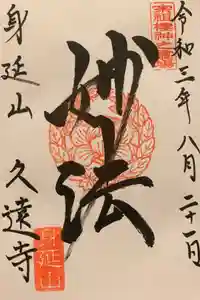 令和三年八月二十一日
妙法
身延山
久遠寺
身延山